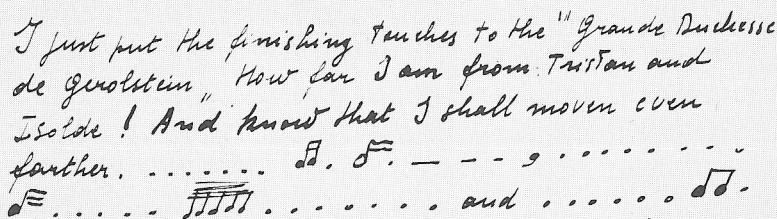 I just put the finishing touches to the " Grande Duchesse
de Gerolstein „ How far I am from Tristan and
Isolde ! And know that I shall moven even
farther. ....... ♫. ♬. — - - , . . . . . . . .
♬ . . . . . ♫♫ . . . . . . . and . . . . . . ♫.